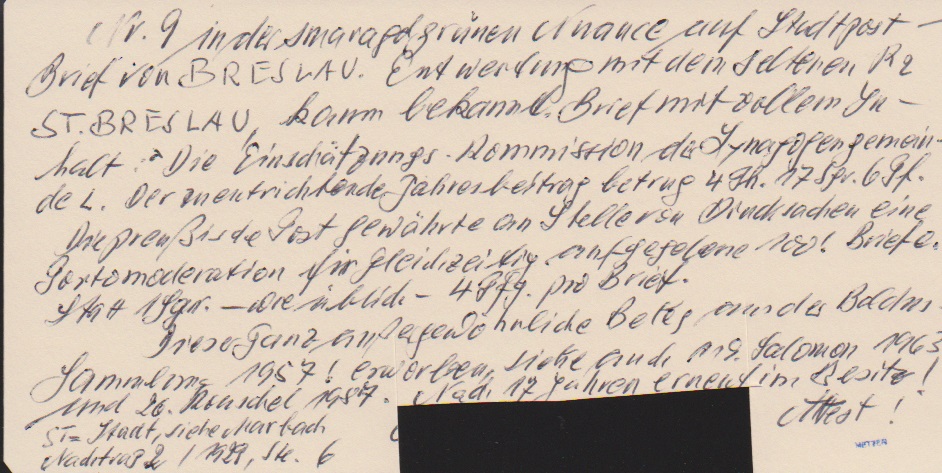 Nr. 9 in der smaragdgrünen Nuance auf Stadtpost-
Brief von BRESLAU. Entwertung mit dem seltenen R2
ST. BRESLAU, kaum bekannt. Brief mit vollem In-
halt: Die Einschätzungs-Kommission der Synagogengemein-
de L. Der zu entrichtende Jahresbeitrag betrug 4 Th. 17 Sgr. 6 Pf.
Die preußische Post gewährte an Stelle von Drucksachen eine
Portomoderation für gleichzeitig aufgegebene 100! Briefe.
Statt 1 Sgr. – wie üblich – 4 Pfg. pro Brief.
Dieser ganz außergewöhnliche Beleg aus der
Sammlung 1957! erworben, siehe auch Salomon 1963
und 26. 1987. Nach 17 Jahren erneut im Besitz!
Attest!
ST = Stadt, siehe Marbach
Nachtrag 2 / 1929, Ste. 6